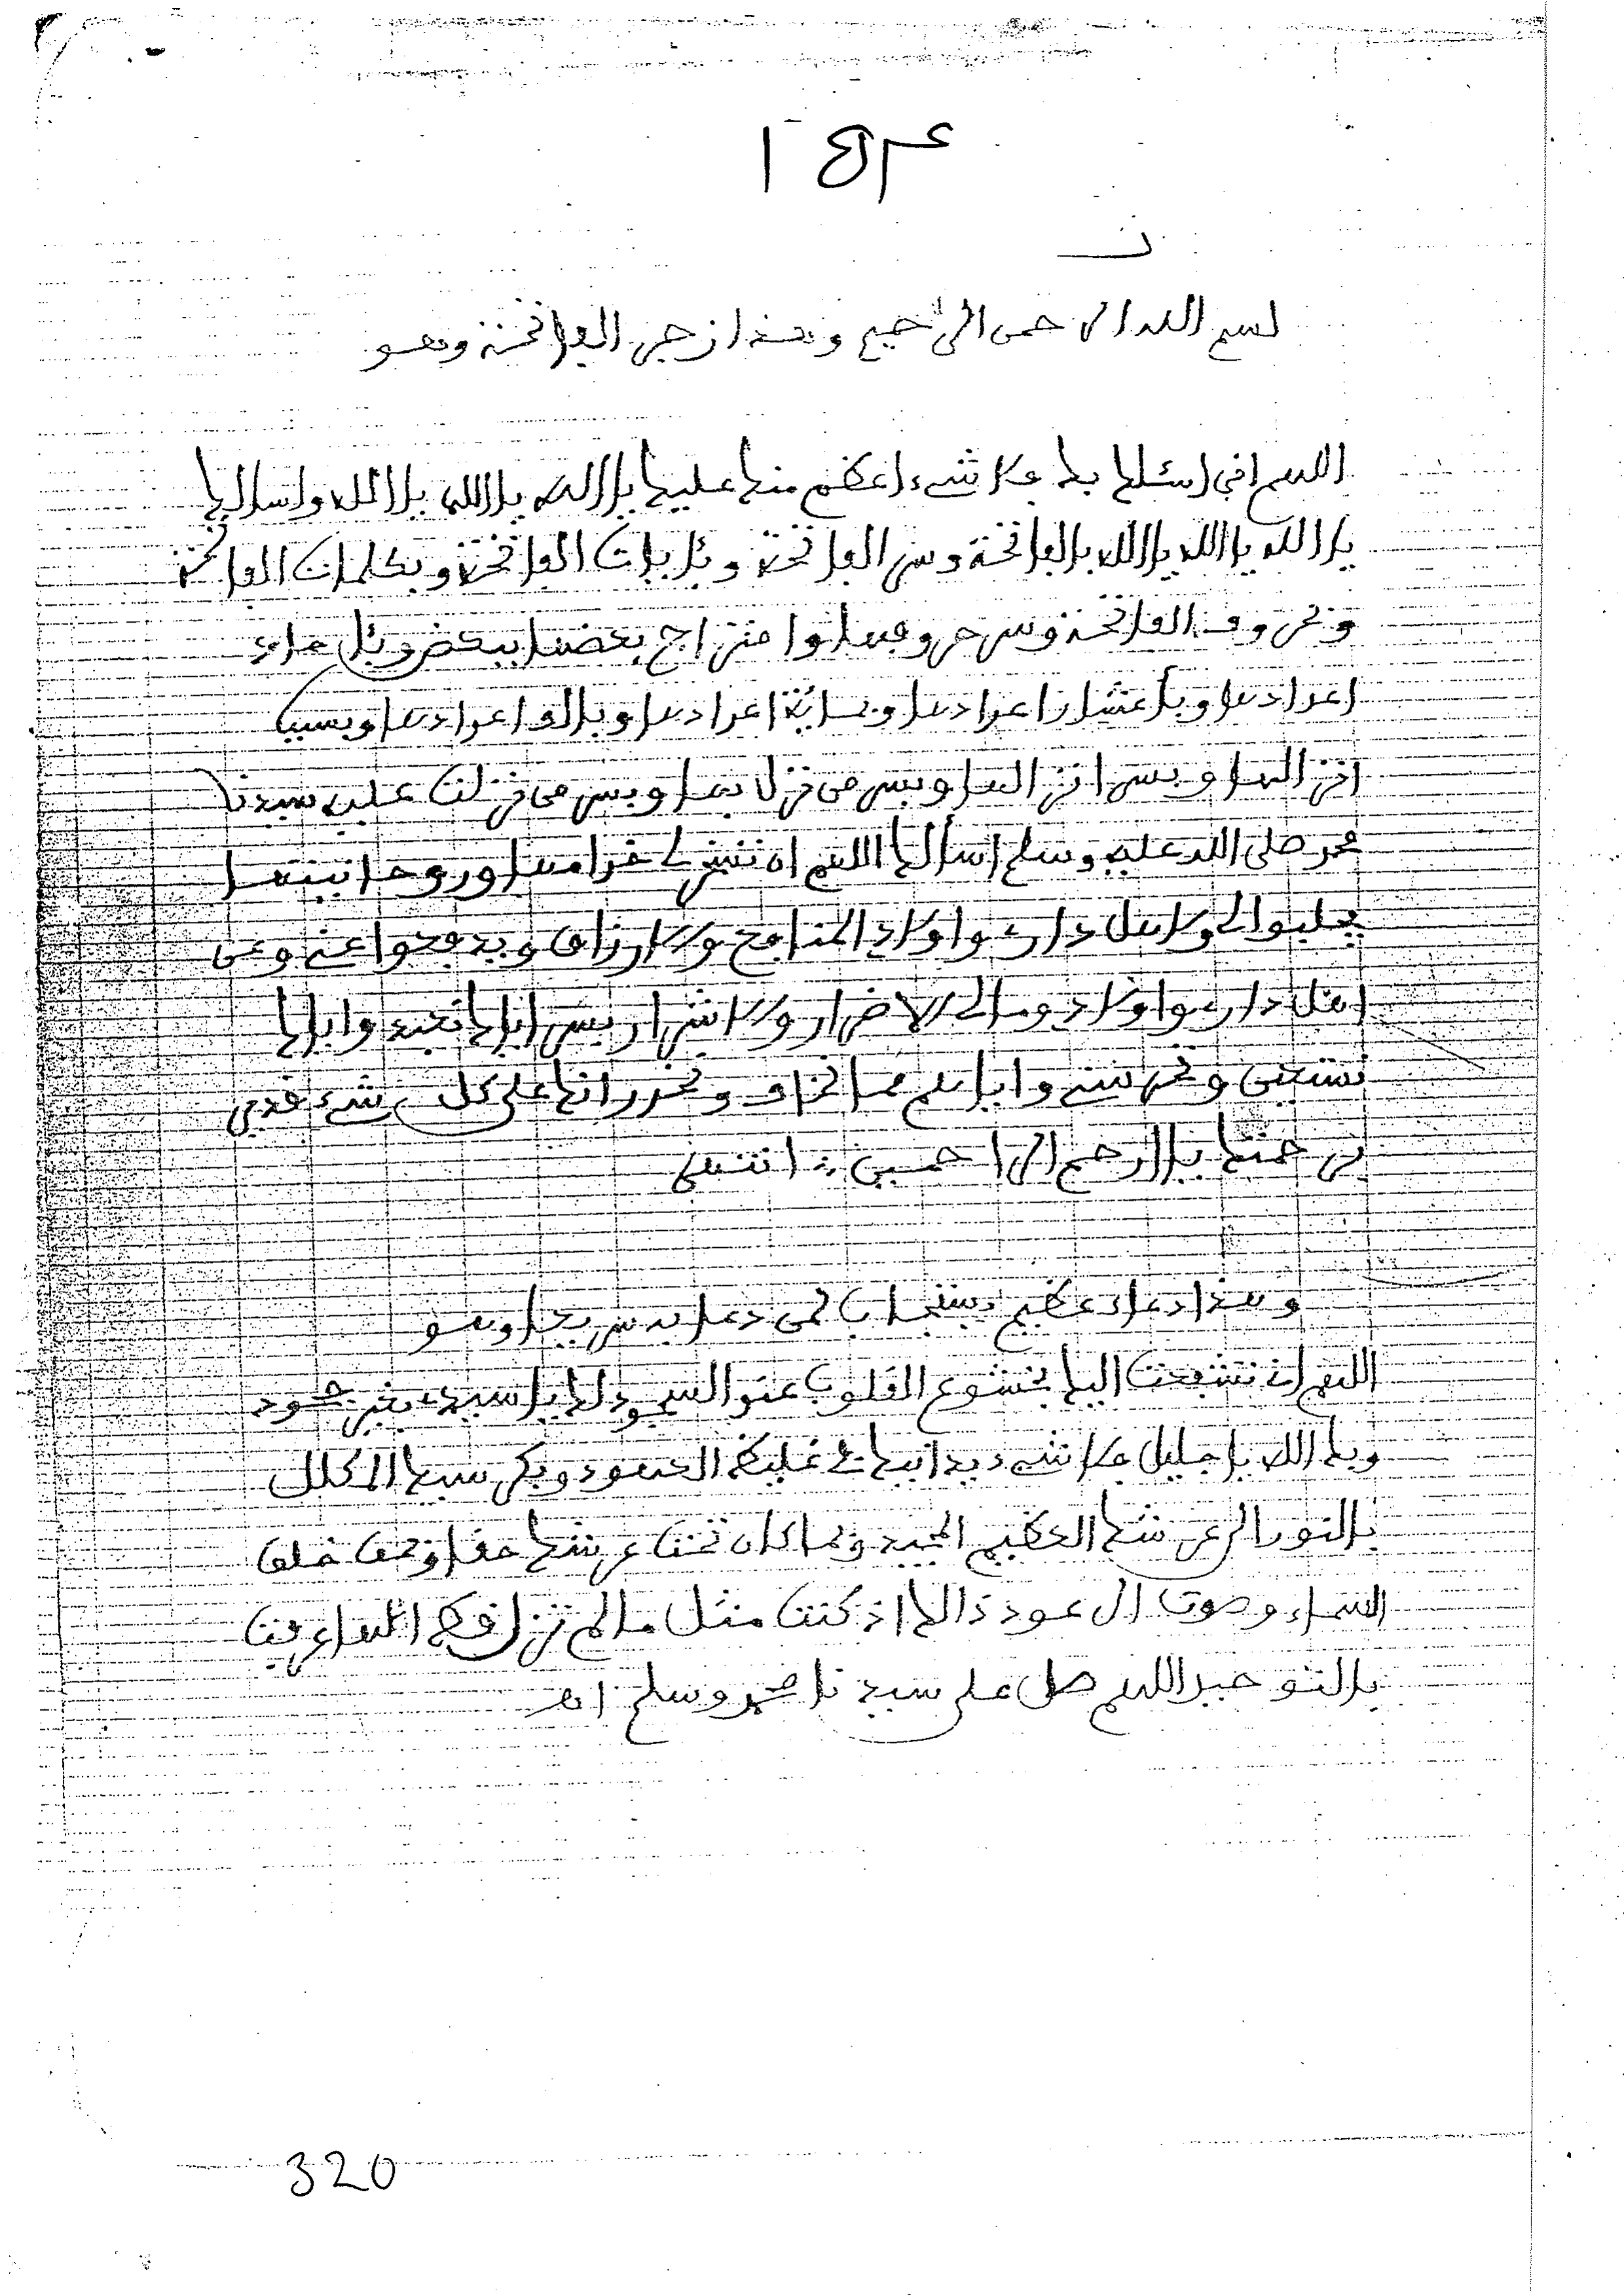 بسم الله الرحمن الرحيم وهذا زجر الفاتحة وهو
اللهم اني اسئلك بك فلا شيء اعظم منك عليك يا الله يا الله يا الله واسالك
يا الله يا الله يا الله بالفاتحة وسر الفاتحة وبآيات الفاتحة وبكلمات الفاتحة
وبحروف الفاتحة وسر حروفها وامتزاج بعضها ببعض
اعدادها وباعشار اعدادها وبمائة اعدادها وبالف اعدادها وبسبب
انزالها وبسر انزالها وبسر من نزل بها وبسر من نزلت عليه سيدنا
محمد صلى الله عليه وسلم اسألك اللهم ان تسخر لي خدامها وروحانيتها
يجلبوا لي ولاهل داري واولادي المنافع والارزاق ويدفعوا عني وعن
اهل داري واولادي ومالي الاضرار والاشرار بسر اياك نعبد واياك
نستعين وتحرسني واياهم مما نخاف ونحذر انك على كل شيء قدير
برحمتك يا ارحم الراحمين انتهى
وهذا دعاء عظيم يستجاب لمن دعا به سريعا وهو
اللهم اني تشفعت اليك بخشوع القلوب عند السجود لك يا سيدي بغير جحود
وبك الله يا جليل فلا شيء يدانيك في غليظ العهود وبكرسيك المكلل
بالنور الى عرشك العظيم المجيد وبما كان تحت عرشك حقا وقبل خلق
السماء وصوت الرعود ذالك اذ كنت مثل ما لم تزل قط الها عرفت
بالتوحيد اللهم صل على سيدنا محمد وسلم اهـ
320